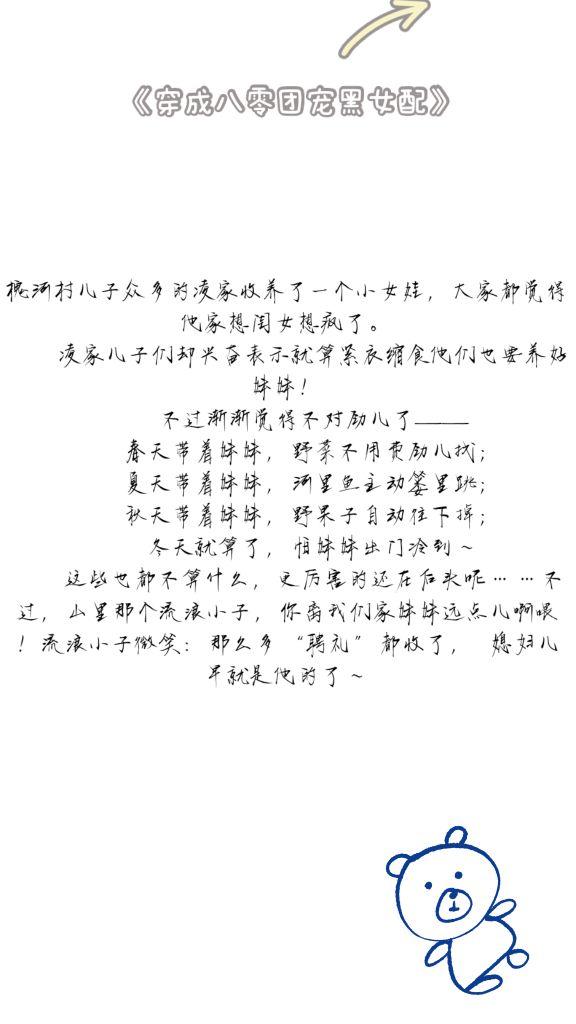 《穿成八零团宠黑女配》
槐河村儿子众多的凌家收养了一个小女娃，大家都觉得
他家想闺女想疯了。
凌家儿子们却兴奋表示就算紧衣缩食他们也要养好
妹妹！
不过渐渐觉得不对劲儿了——
春天带着妹妹，野菜不用费劲儿找；
夏天带着妹妹，河里鱼主动篓里跳；
秋天带着妹妹，野果子自动往下掉；
冬天就算了，怕妹妹出门冷到~
这些也都不算什么，更厉害的还在后头呢……不
过，山里那个流浪小子，你离我们家妹妹远点儿啊喂
！流浪小子微笑：那么多“聘礼”都收了，媳妇儿
早就是他的了~